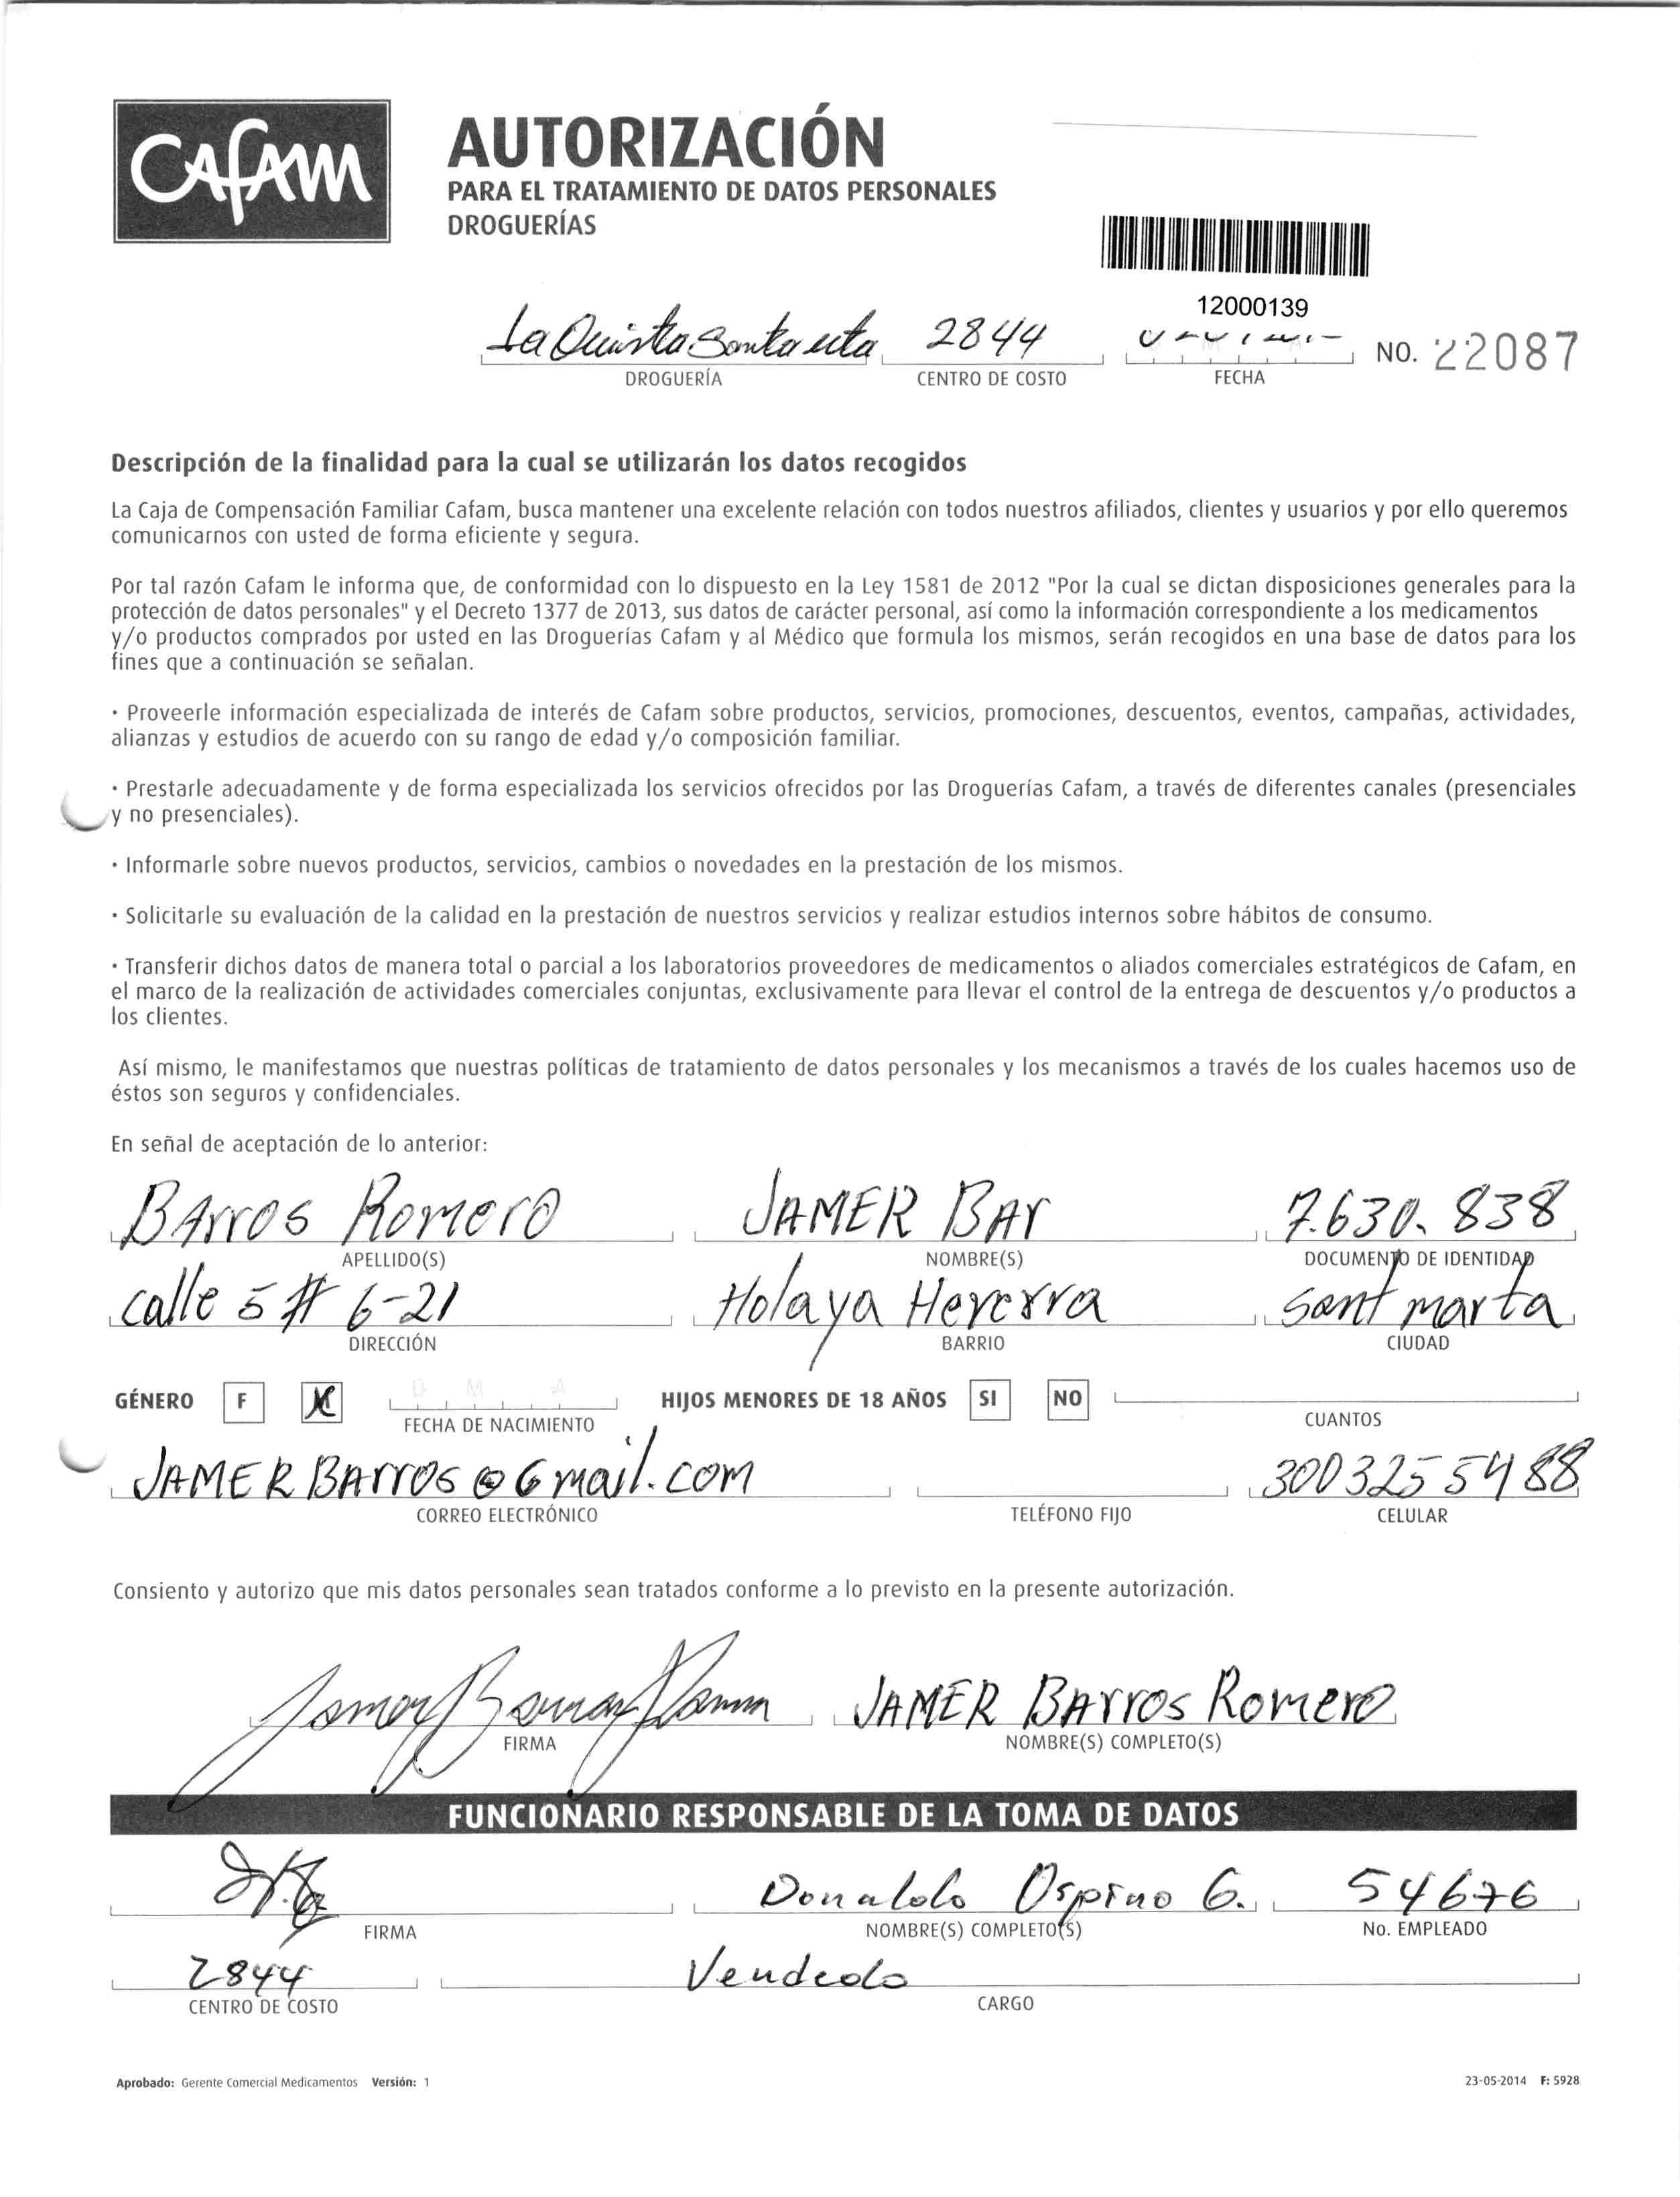 CAFAM
AUTORIZACIÓN
PARA EL TRATAMIENTO DE DATOS PERSONALES
DROGUERÍAS
12000139
La Quinta Santa 2844
NO. 22087
DROGUERÍA CENTRO DE COSTO FECHA
Descripción de la finalidad para la cual se utilizarán los datos recogidos
La Caja de Compensación Familiar Cafam, busca mantener una excelente relación con todos nuestros afiliados, clientes y usuarios y por ello queremos
comunicarnos con usted de forma eficiente y segura.
Por tal razón Cafam le informa que, de conformidad con lo dispuesto en la Ley 1581 de 2012 "Por la cual se dictan disposiciones generales para la
protección de datos personales" y el Decreto 1377 de 2013, sus datos de carácter personal, así como la información correspondiente a los medicamentos
y/o productos comprados por usted en las Droguerías Cafam y al Médico que formula los mismos, serán recogidos en una base de datos para los
fines que a continuación se señalan.
· Proveerle información especializada de interés de Cafam sobre productos, servicios, promociones, descuentos, eventos, campañas, actividades,
alianzas y estudios de acuerdo con su rango de edad y/o composición familiar.
· Prestarle adecuadamente y de forma especializada los servicios ofrecidos por las Droguerías Cafam, a través de diferentes canales (presenciales
y no presenciales).
· Informarle sobre nuevos productos, servicios, cambios o novedades en la prestación de los mismos.
· Solicitarle su evaluación de la calidad en la prestación de nuestros servicios y realizar estudios internos sobre hábitos de consumo.
· Transferir dichos datos de manera total o parcial a los laboratorios proveedores de medicamentos o aliados comerciales estratégicos de Cafam, en
el marco de la realización de actividades comerciales conjuntas, exclusivamente para llevar el control de la entrega de descuentos y/o productos a
los clientes.
Así mismo, le manifestamos que nuestras políticas de tratamiento de datos personales y los mecanismos a través de los cuales hacemos uso de
éstos son seguros y confidenciales.
En señal de aceptación de lo anterior:
BArros Romero JAMER BAr 7.630.838
APELLIDO(S) NOMBRE(S) DOCUMENTO DE IDENTIDAD
calle 5 # 6-21 Holaya Hererra sant marta
DIRECCIÓN BARRIO CIUDAD
GÉNERO F M D M A HIJOS MENORES DE 18 AÑOS SI NO
FECHA DE NACIMIENTO CUANTOS
JAMERBArros@Gmail.com 3003255488
CORREO ELECTRÓNICO TELÉFONO FIJO CELULAR
Consiento y autorizo que mis datos personales sean tratados conforme a lo previsto en la presente autorización.
JAMER BArros Romero
FIRMA NOMBRE(S) COMPLETO(S)
FUNCIONARIO RESPONSABLE DE LA TOMA DE DATOS
Donaldo Ospino G. 54676
FIRMA NOMBRE(S) COMPLETO(S) No. EMPLEADO
2844 Vendedo
CENTRO DE COSTO CARGO
Aprobado: Gerente Comercial Medicamentos Versión: 1 23-05-2014 F: 5928